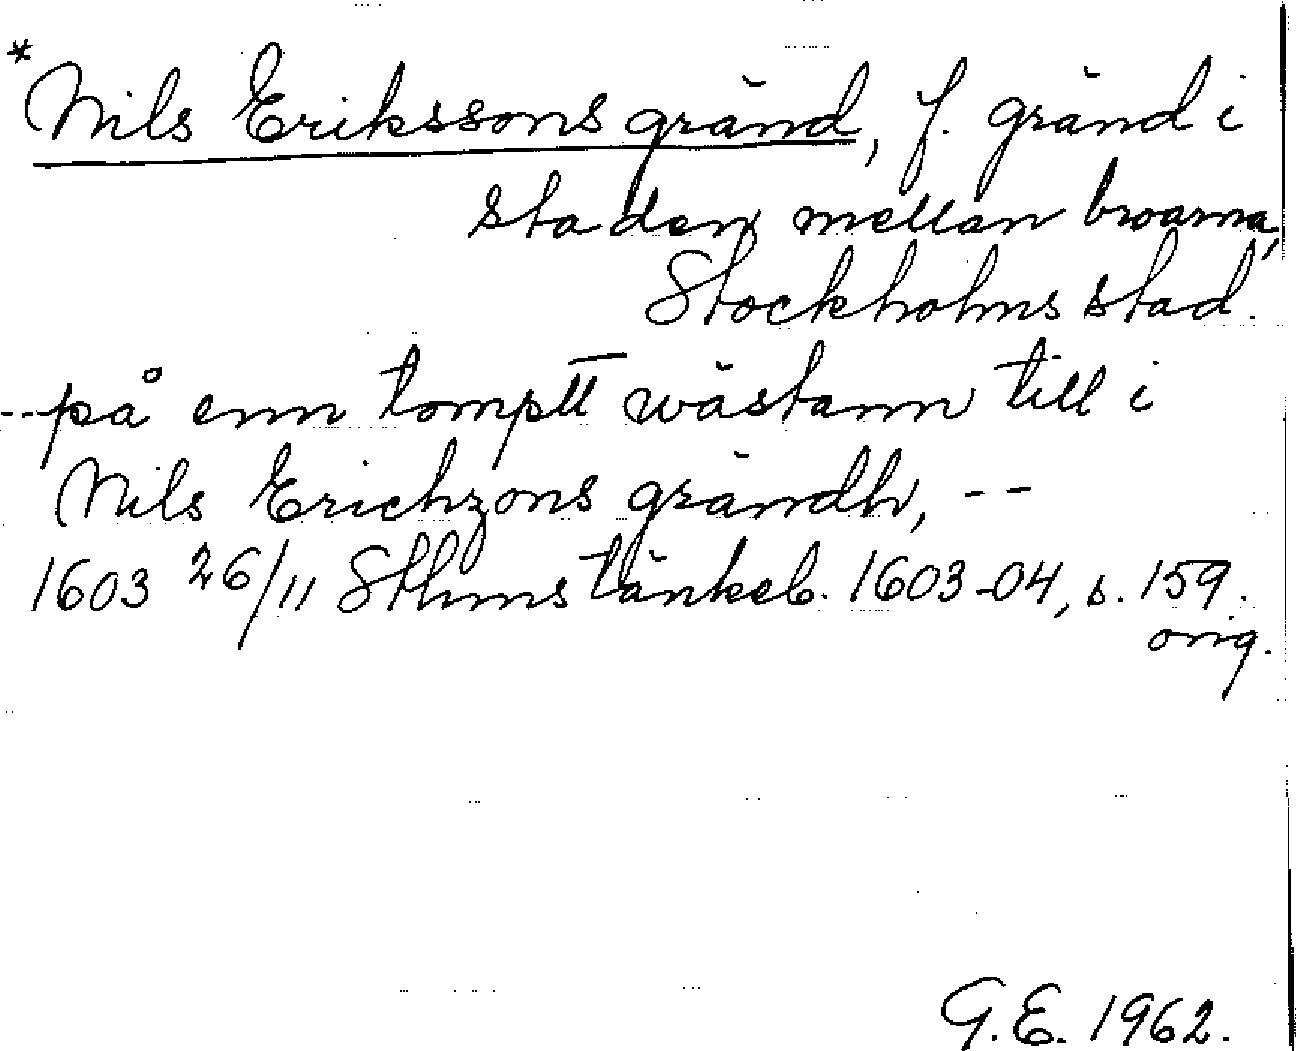 * Nils Erikssons gränd, f. gränd i
staden mellan broarna,
Stockholms stad.
--på enn tomptt wästann till i
Nils Erichzons gründh, --
1603 26/11 Sthms tänkeb. 1603-04, s. 159.
orig.
G.E. 1962.